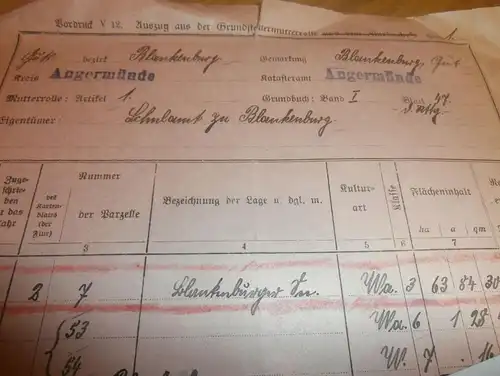 Vordruck V 12. Auszug aus der Grundsteuermutterrolle 1.
bezirk Blankenburg Gemarkung Blankenburg, Gut
Kreis Angermünde Katasteramt Angermünde
Mutterrolle: Artikel 1. Grundbuch: Band I Blatt 47.
Eigentümer: zu Blankenburg.
Nummer
der Parzelle
Bezeichnung der Lage u. dgl. m.
Kultur-
art
Klasse
Flächeninhalt
ha a qm
3 4 5 6 7
2 7 Blankenburger See. Wa. 3 63 84 30
53 Wa. 6 1 28
54 W. 7 . 16